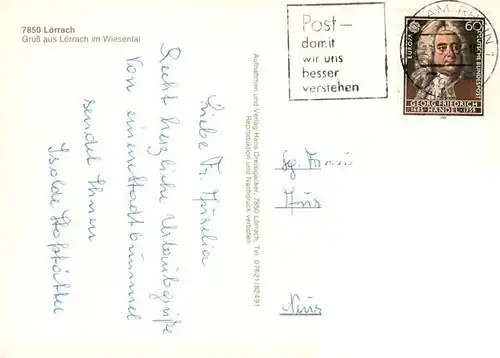 7850 Lörrach
Gruß aus Lörrach im Wiesental
Liebe Fr.
Recht herzliche Urlaubsgrüße
Von einem Stadtbummel
sendet Ihnen
Isolde
Aufnahmen und Verlag Hans Dreispacker, 7850 Lörrach, Tel. 07621/82491
Reproduktion und Nachdruck verboten.
Post-
damit
wir uns
besser
verstehen
AM RHEIN 1
EUROPA
60
DEUTSCHE BUNDESPOST
GEORG FRIEDRICH
1685-HÄNDEL-1759